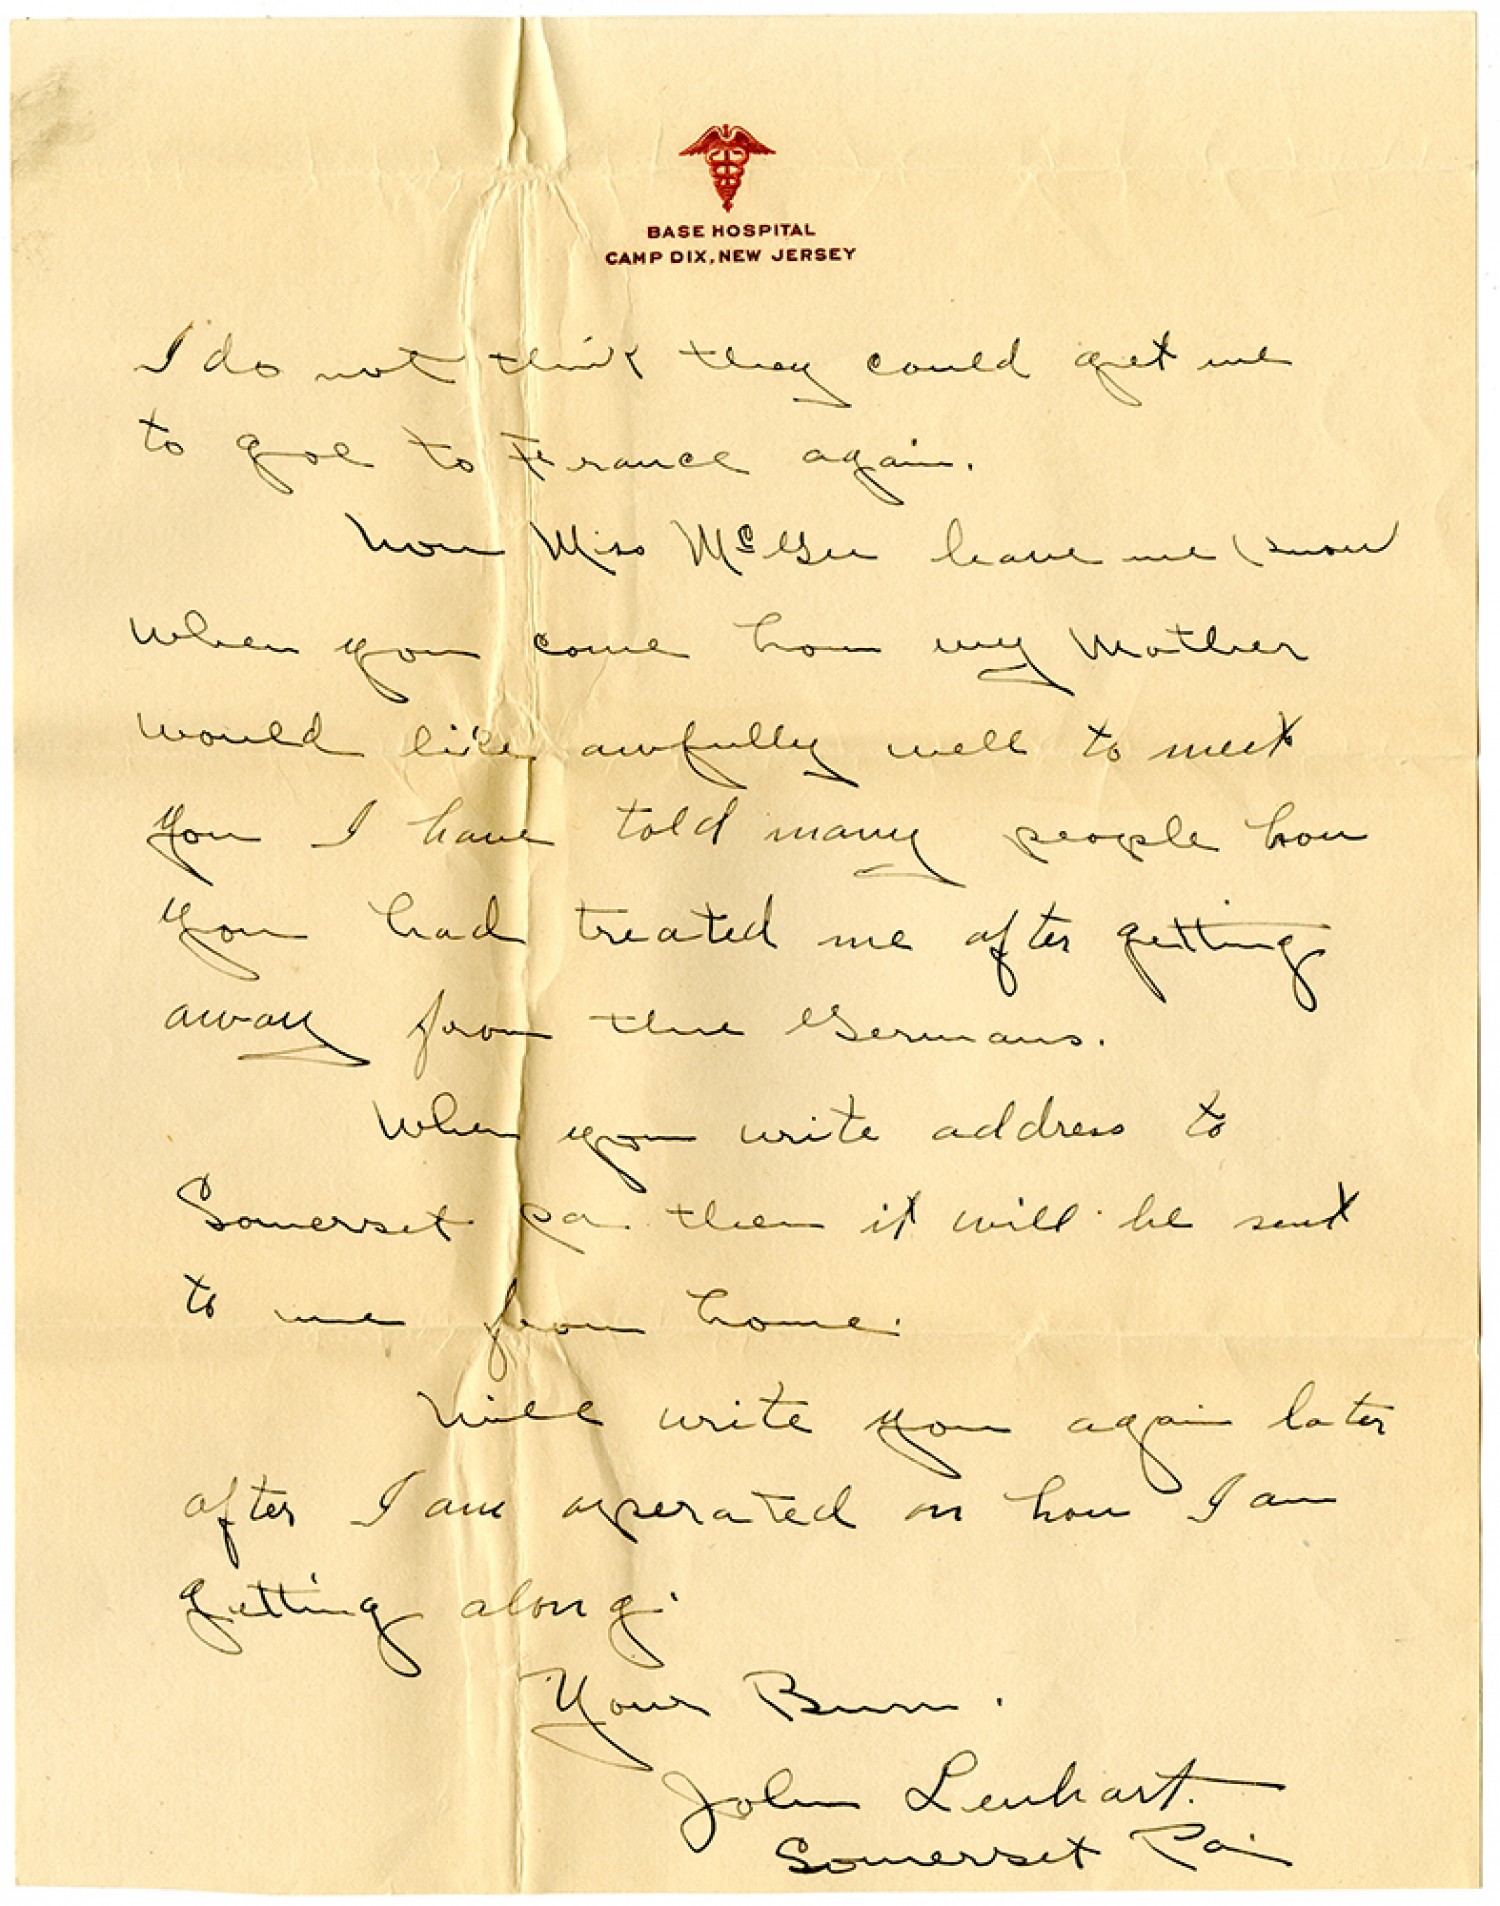 BASE HOSPITAL
CAMP DIX, NEW JERSEY
I do not think they could get me
to goe to France again.
Now Miss McGee leave me know
when you come hom my Mother
would like awfully well to meet
you I have told many people how
you had treated me after getting
away from the Germans.
When you write address to
Somerset Pa then it will be sent
to me from home.
Will write you again later
after I am operated on how I am
getting along.
Your Bum.
John Lenhart.
Somerset Pa.